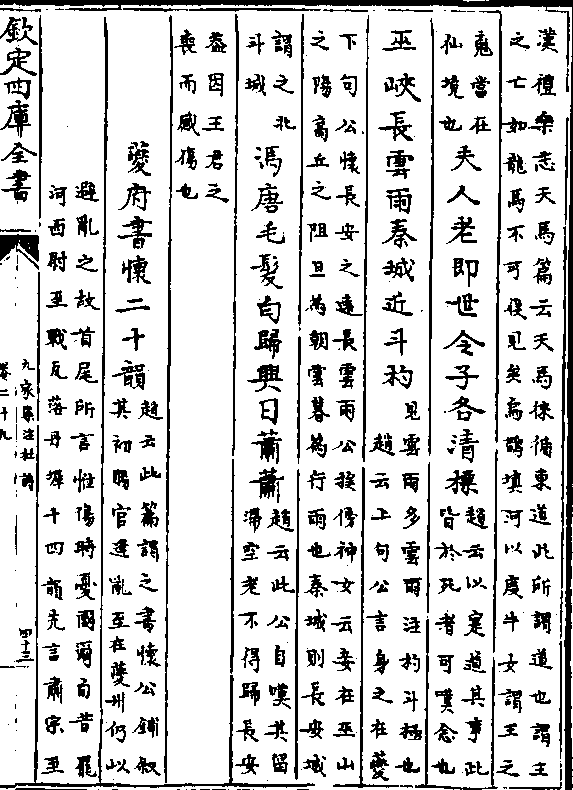 漢禮樂志天馬篇云天馬徠循東道此所謂道也謂王
之亡如龍馬不可復見矣烏鵲填河以度牛女謂王之
魂當在
仙境也
夫人老即世令子各清標
趙云以寔道其事此
皆於死者可嘆念也
巫峽長雲雨秦城近斗杓
見雲雨多雲雨注杓斗極也
趙云上句公言身之在夔
下句公懷長安之遠長雲雨公挨傍神女云妾在巫山
之陽高丘之阻旦為朝雲暮為行雨也秦城則長安城
謂之北
斗城
馮唐毛髮白歸興日蕭蕭
趙云此公自嘆其留
滯空老不得歸長安
葢因王君之
喪而感傷也
夔府書懷二十韻
趙云此篇謂之書懷公鋪叙
其初賜官遭亂至在夔州仍以
避亂之故首尾所言惟傷時憂國爾自昔罷
河西尉至戰瓦落丹墀十四韻先言肅宗至
欽定四庫全書
九家集注杜詩
卷二十九
四十三